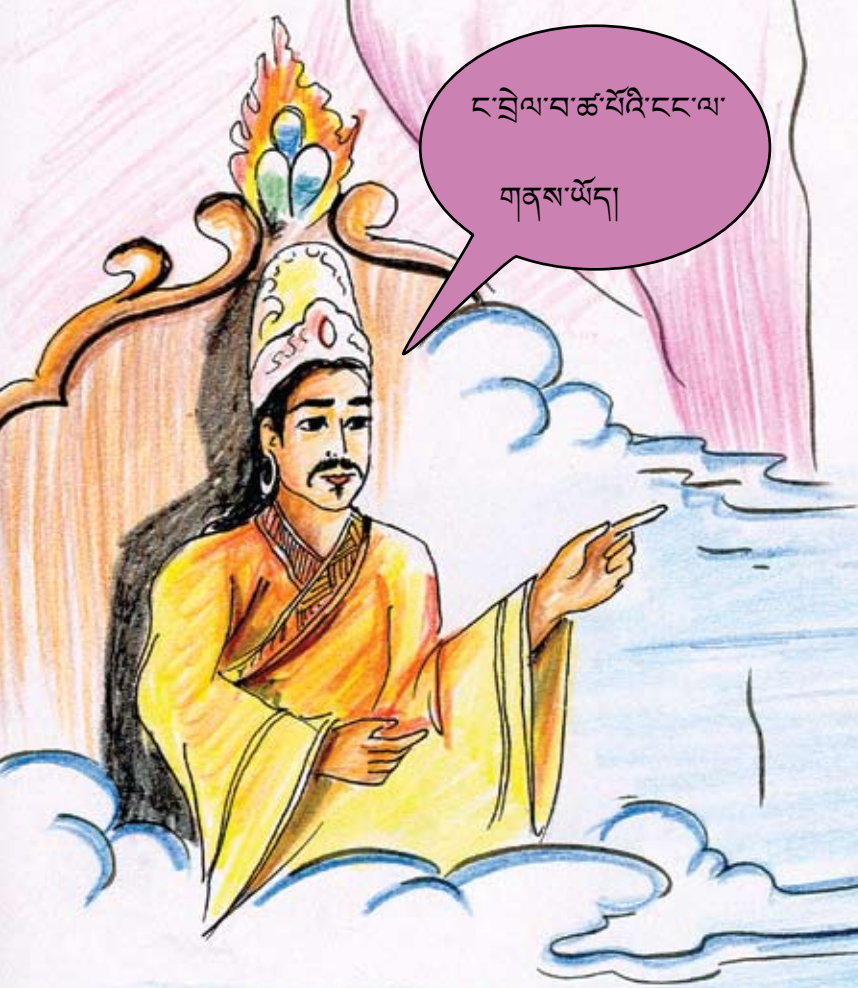 ང་བྲེལ་བ་ཚ་པོའི་ངང་ལ་
གནས་ཡོད།